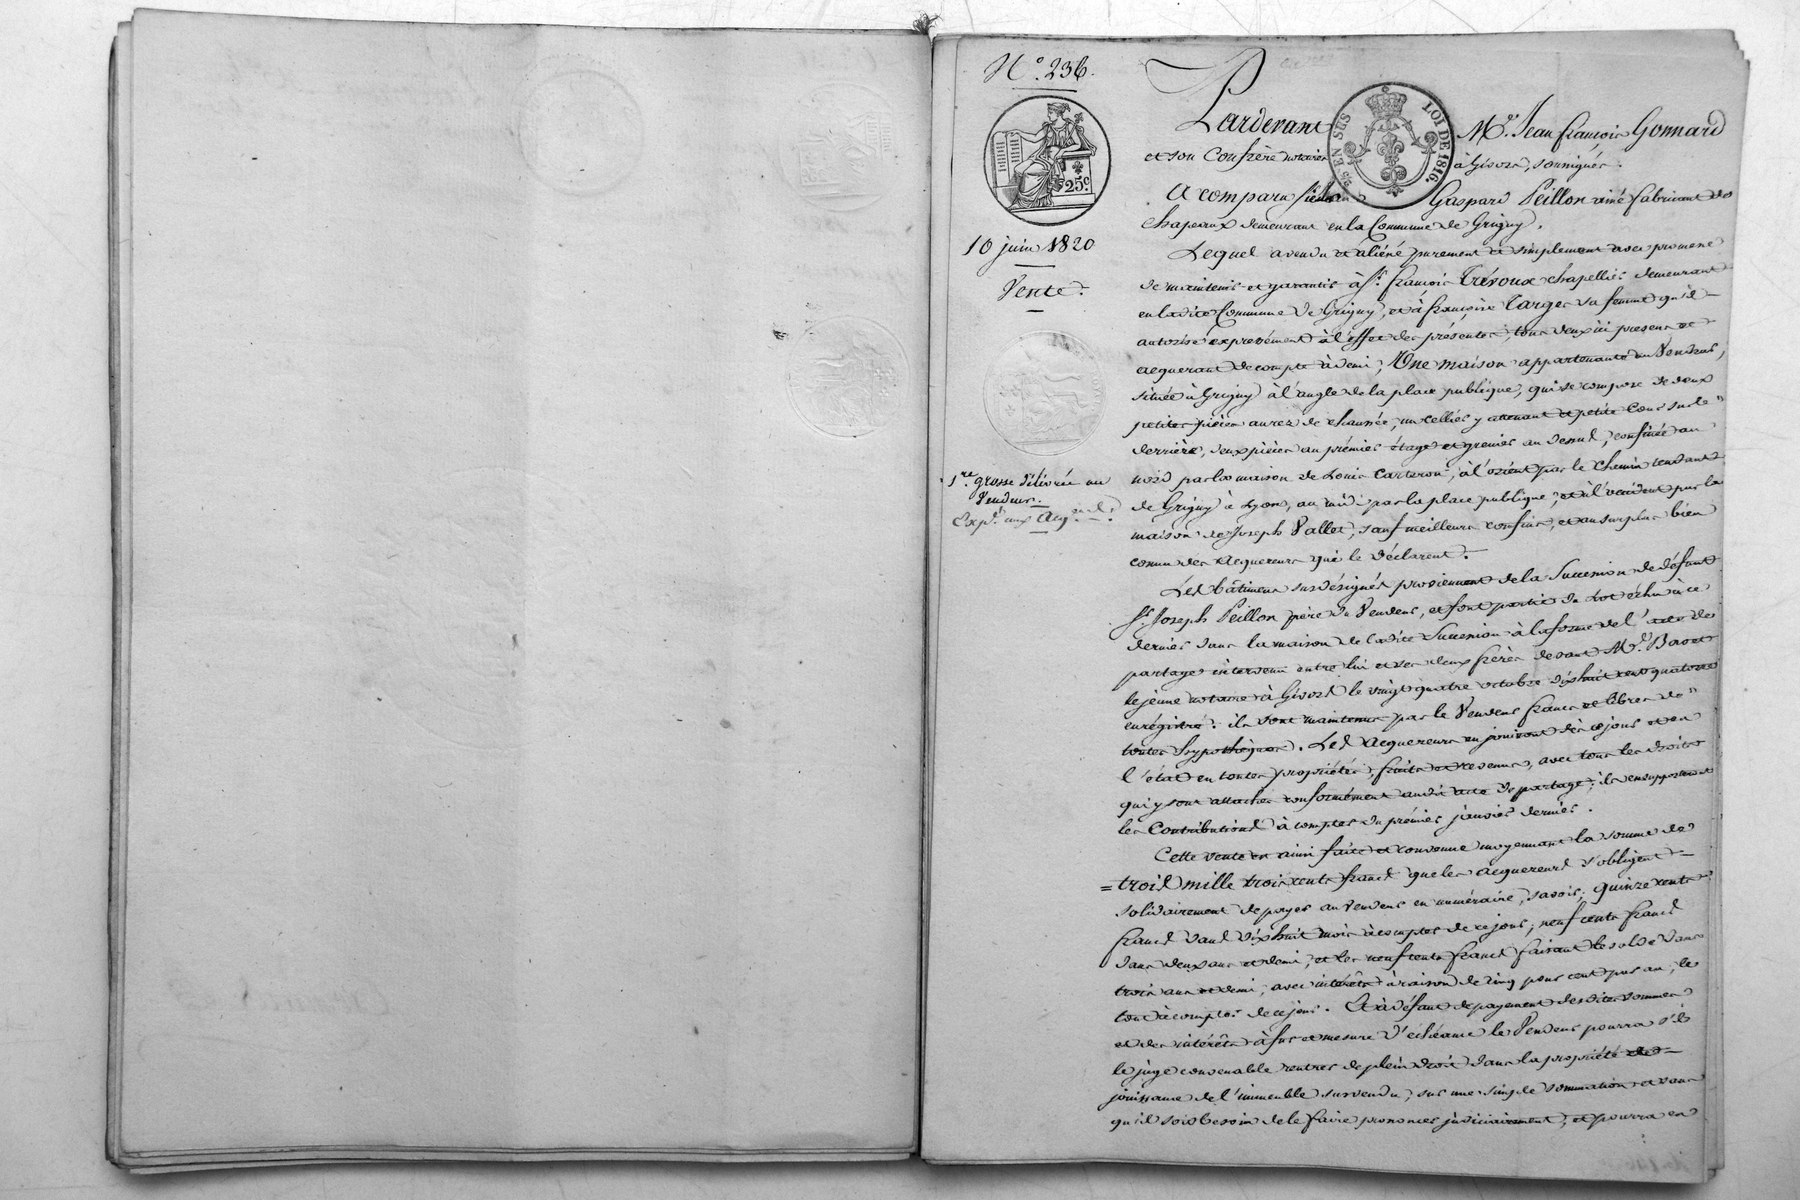 N.° 236.
25.c
10 juin 1820
Vente.
1.re grosse délivrée au
Vendeur.
Exp.on aux Acq.
EN SUS
LOI DE 1816.
Pardevant M.e Jean françois Gonnard
et son Confrère notaires à Givors, soussignés.
A comparu Sieur Gaspard Peillon ainé fabricant de
chapeaux demeurant en la Commune de Grigny.
Lequel a vendu et aliéné purement et simplement avec promesse
de maintenir et garantir à S.r françois Trévoux chapellier demeurant
en ladite Commune de Grigny, et à françoise Targe sa femme qu'il
autorise expressément à l'effet des présentes, tous deux ici present et
acquerant de compte à demi; Une maison appartenante au Vendeur,
située à Grigny à l'angle de la place publique, qui se compose de deux
petites pièces au rez de chaussée, un cellier y attenant et petite Cour sur le
derrière, deux pièces au prémier étage et grenier au dessus, confinée au
nord par la maison de Louis Carteron, à l'orient par le chemin tendant
de Grigny à Lyon, au midi par la place publique, et à l'occident par la
maison de Joseph Vallet, sauf meilleurs confins, et au surplus bien
connu des Acquereurs qui le déclarent.
Les bâtimens susdésignés proviennent de la Succession de défunt
S.r Joseph Peillon père du Vendeur, et font partie du lot échu à ce
dernier dans la maison de ladite Succession à la forme de l'acte de
partage intervenu entre lui et ses deux frères devant M.e
le jeune notaire à Givors le vingt quatre octobre dix huit cent quatorze
enrégistré: ils sont maintenus par le Vendeur francs et libres de
toutes hypothèques. Les Acquereurs en jouiront dès ce jour et en
l'état en toutes propriétés, fruits et revenus, avec tous les droits
qui y sont attachés conformément audit acte de partage; ils en supporteront
les Contributions à compter du prémier janvier dernier.
Cette vente est ainsi faite et convenue moyennant la somme de
= trois mille trois cents francs que les acquereurs s'obligent
solidairement de payer au Vendeur en numéraire, savoir; quinze cents
francs dans dix huit mois à compter de ce jour, neuf cents francs
dans deux ans et demi, et les neuf cents francs faisant le solde dans
trois ans et demi, avec intérêts à raison de cinq pour cent par an, le
tout à compter de ce jour. Et à défaut de payement desdites sommes
et des intérêts à fur et mesure d'échéance le Vendeur pourra s'il
le juge convenable rentrer de plein droit dans la propriété et
jouissance de l'immeuble survendu, sur une simple sommation et sans
qu'il soit besoin de le faire prononcer judiciairement, et pourra en